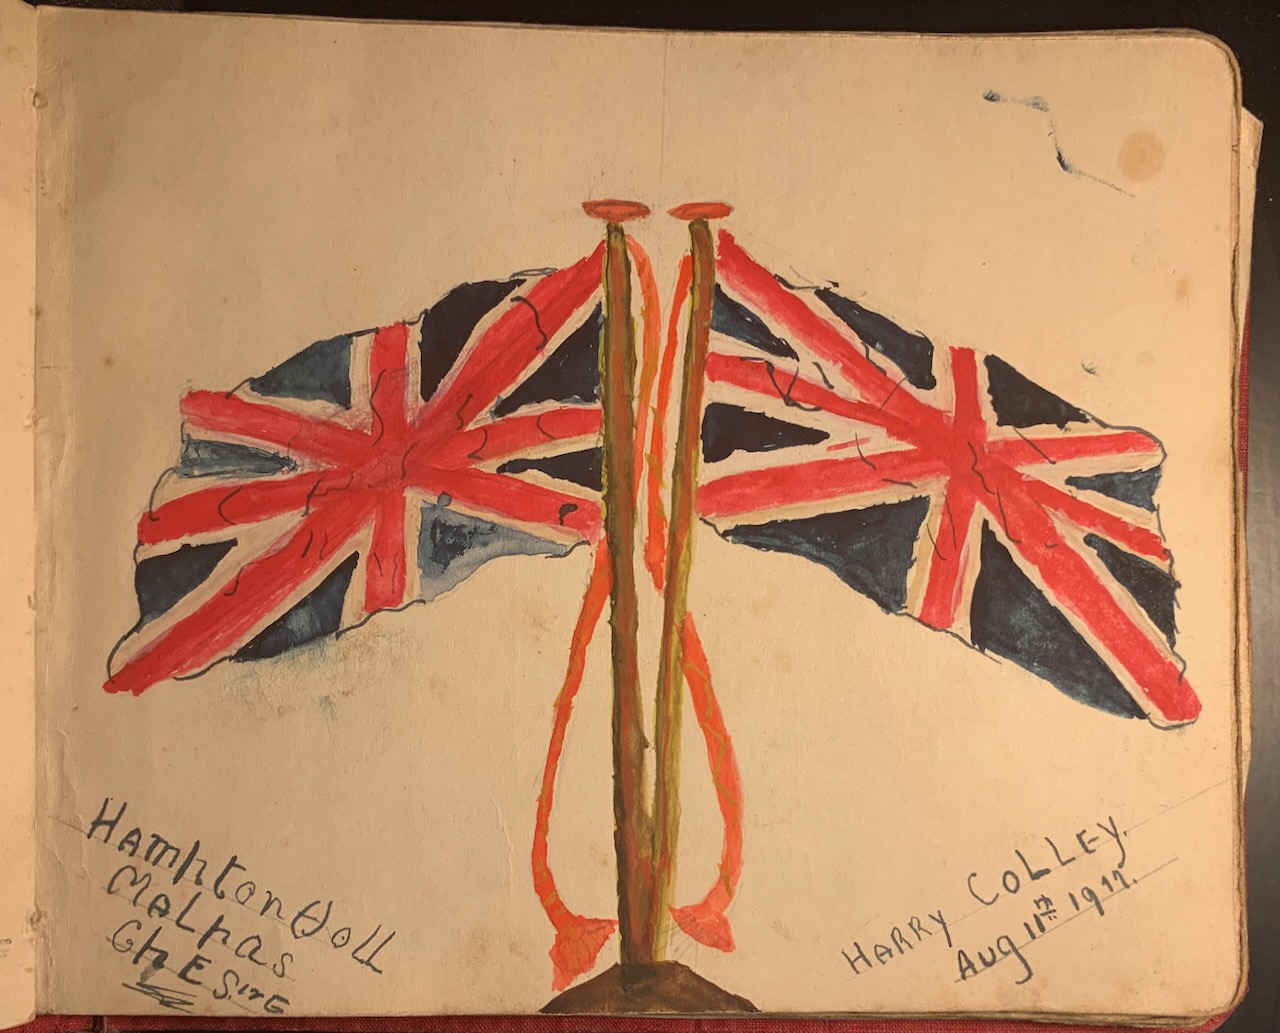 Hampton Holl
Malpas
Cheshire
HARRY COLLEY.
Aug 11th 1917.